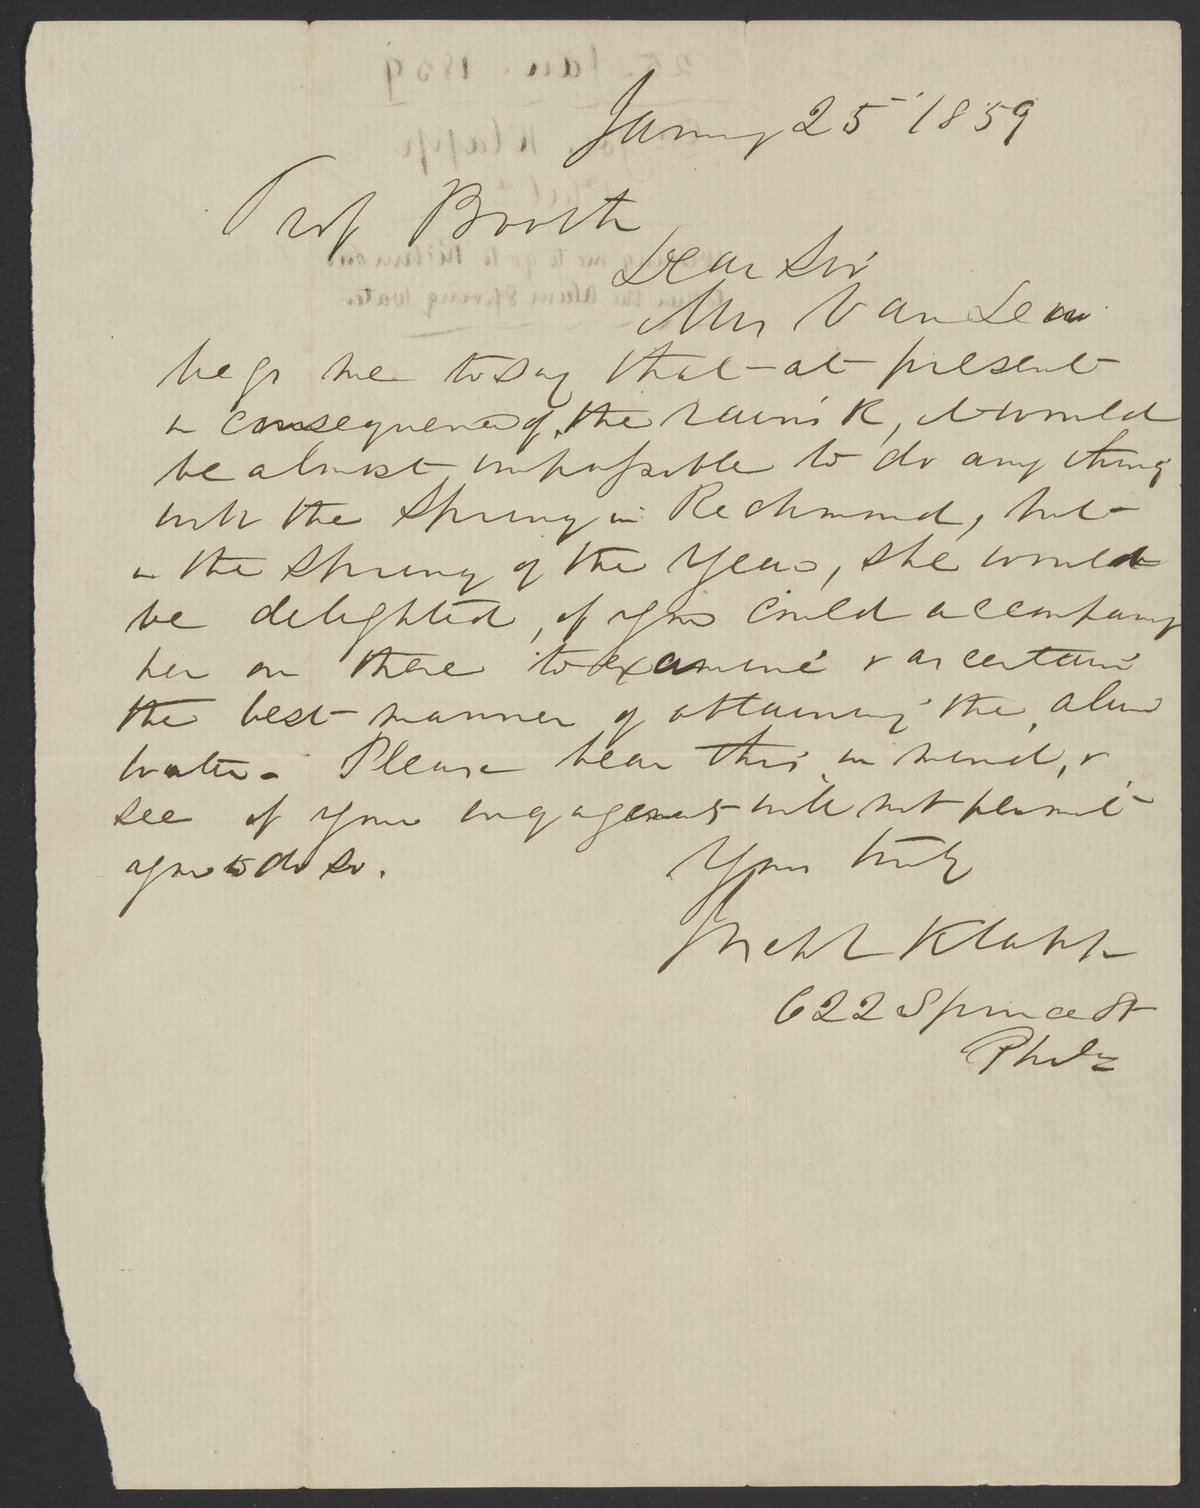 January 25 1859
Prof Booth
Dear Sir
Mrs Van Lew
begs me to say that at present
in consequence of the rains &c, it would
be almost impossible to do any thing
with the Spring in Richmond, but
in the Spring of the Year, she would
be delighted, if you could accompany
her on there to examine & ascertain
the best manner of obtaining the alum
water. Please bear this in mind, &
see if your engagements will not permit
you to do so.
Yours truly
Klapp
622 Spruce St
Phila